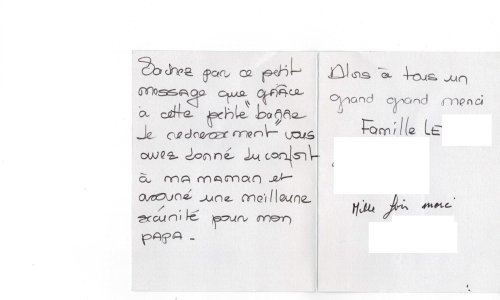 Sachez par ce petit
message que grâce
à cette petite "barre
de redressement" vous
avez donné du confort
à ma maman et
assuré une meilleure
sécurité pour mon
PAPA.
Alors à tous un
grand grand merci
Famille LE
Mille fois merci